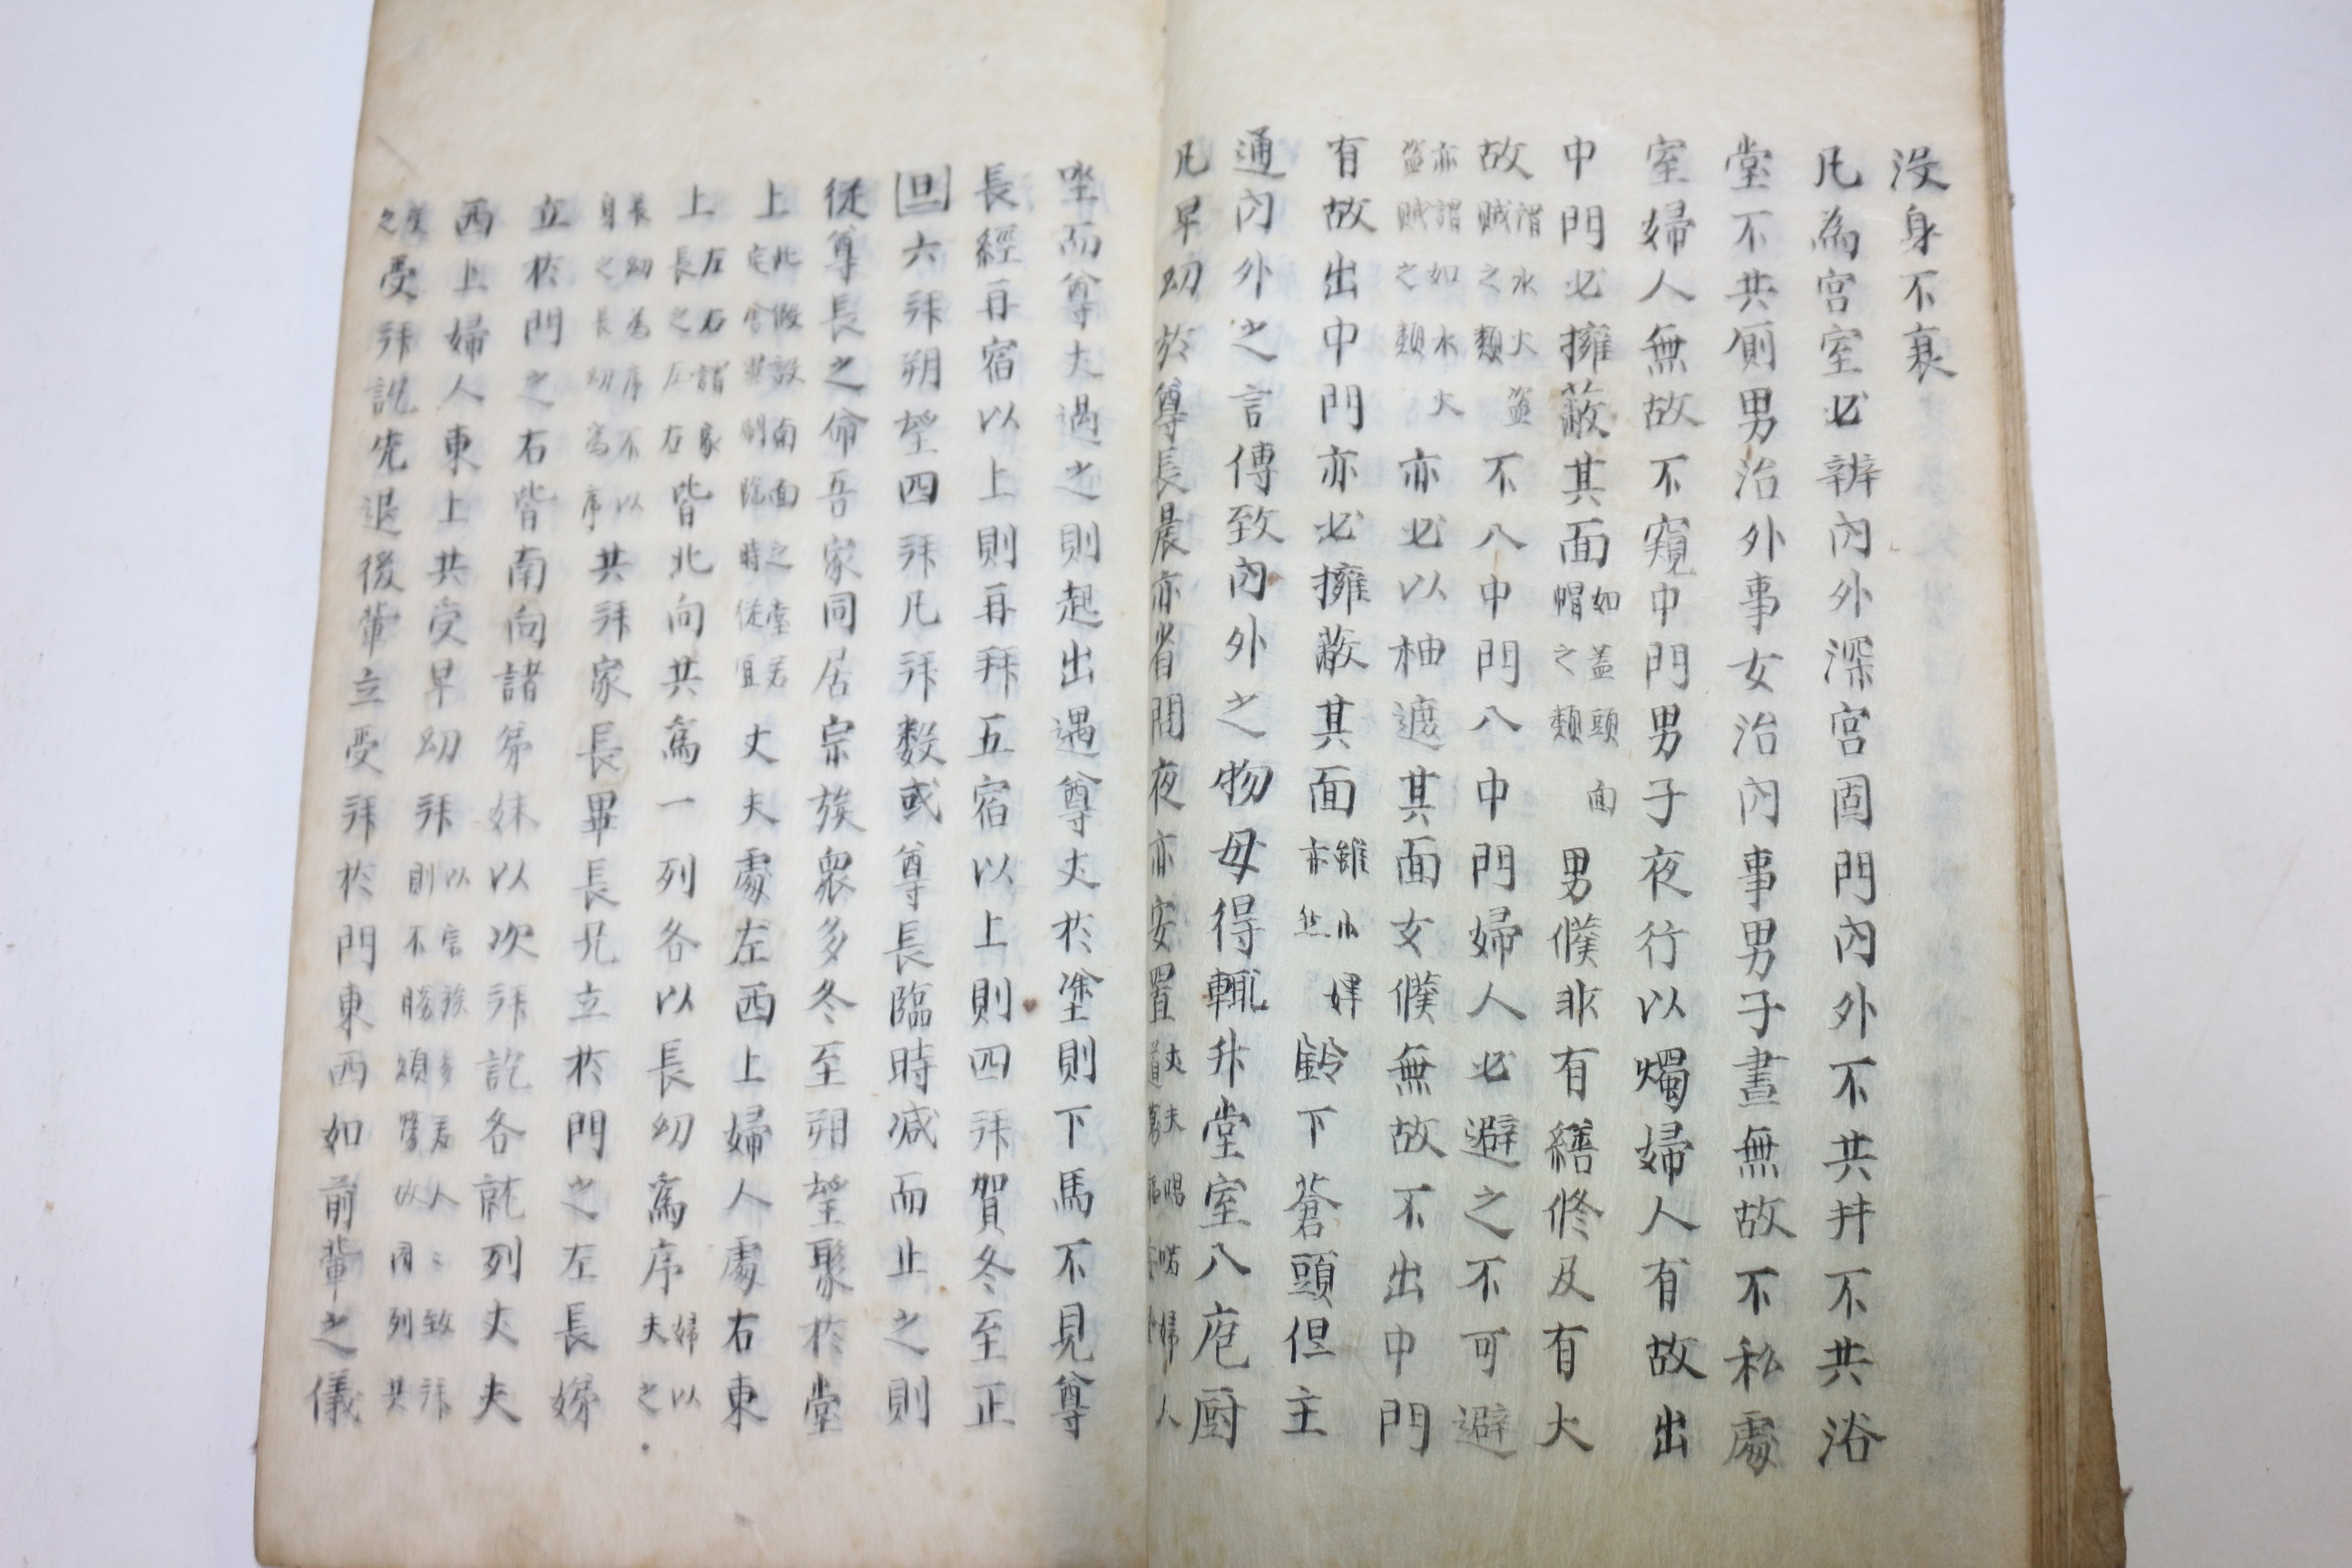 没身不衰
凡為宮室必辨内外深宮固門内外不共井不共浴
堂不共厠男治外事女治内事男子晝無故不私處
室婦人無故不窺中門男子夜行以燭婦人有故出
中門必擁蔽其面如蓋頭面帽之類男僕非有繕修及有大
故謂水火盗賊之類不入中門入中門婦人必避之不可避
亦謂如水火盗賊之類亦必以袖遮其面女僕無故不出中門
有故出中門亦必擁蔽其面雖小婢亦然鈴下蒼頭但主
通内外之言傳致内外之物毋得輒升堂室入庖厨
凡卑幼於尊長晨亦省問夜亦安置丈夫唱喏婦人道萬福安置
坐而尊丈過之則起出遇尊丈於塗則下馬不見尊
長經再宿以上則再拜五宿以上則四拜賀冬至正
旦六拜朔望四拜凡拜数或尊長臨時减而止之則
從尊長之命吾家同居宗族衆多冬至朔望聚於堂
上此假設南面之堂若宅舍異制臨時從宜丈夫處左西上婦人處右東
上左右謂家長之左右皆北向共為一列各以長幼為序婦以夫之
長幼為序不以身之長幼為序共拜家長畢長兄立於門之左長姊
立於門之右皆南向諸弟妹以次拜訖各就列丈夫
西上婦人東上共受卑幼拜以宗族多若人〻致拜則不勝煩勞故同列共
受之受拜訖先退後輩立受拜於門東西如前輩之儀